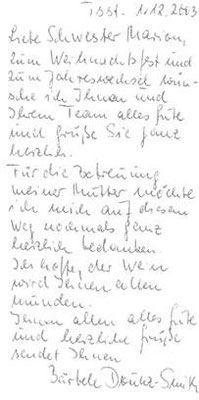 1.12.2003
Liebe Schwester Marion,
zum Weihnachtsfest und
zum Jahreswechsel wün-
sche ich Ihnen und
Ihrem Team alles Gute
und grüße Sie ganz
herzlich.
Für die Betreuung
meiner Mutter möchte
ich mich auf diesem
Weg nochmals ganz
herzlich bedanken.
Ich hoffe, der Wein
wird Ihnen allen
munden.
Ihnen allen alles Gute
und herzliche Grüße
sendet Ihnen
Bärbel